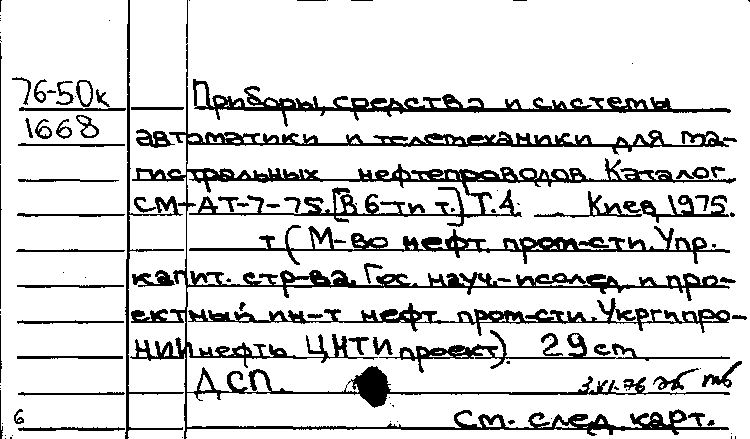 76-50к Приборы, средства и системы
1668 автоматики и телемеханики для ма-
гистральных нефтепроводов. Каталог
СМ-АТ-7-75. [В 6-ти т.] Т.4. Киев, 1975.
т (М-во нефт. пром-сти. Упр.
капит. стр-ва. Гос. науч.-исслед. и про-
ектный ин-т нефт. пром-сти. Укргипро-
НИИнефть. ЦНТИпроект). 29 ст.
ДСП.
3.XI.76
6 См. след. карт.